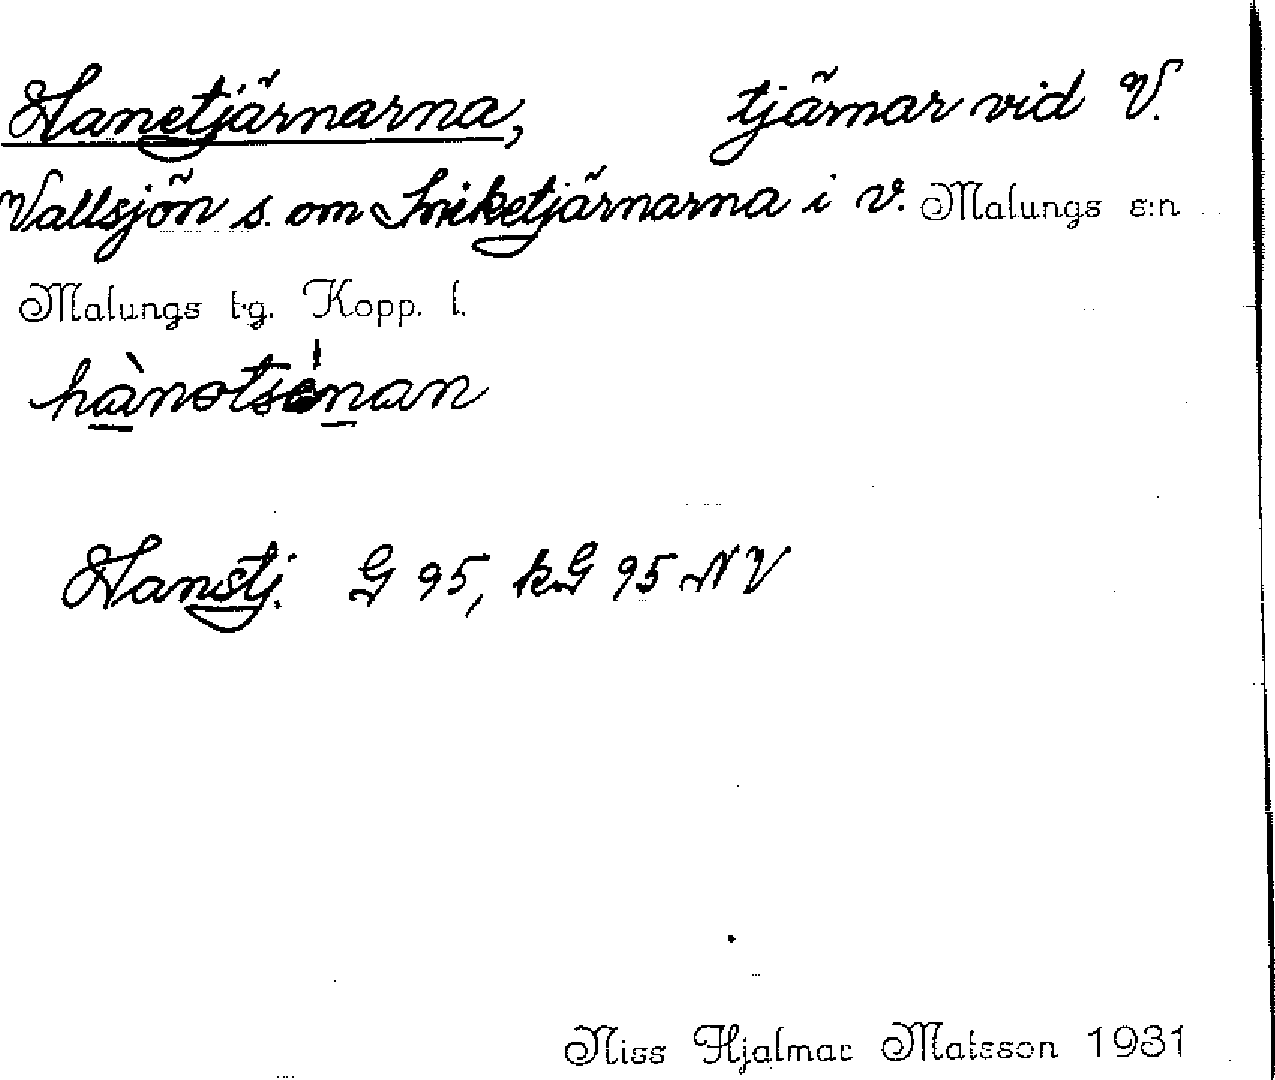 Hanetjärnarna, tjärnar vid V.
Vallsjön s. om Sniketjärnarna i v. Malungs s:n
Malungs tg. Kopp. l.
Hanetj. G 95, kG 95 NV
Niss Hjalmar Matsson 1931